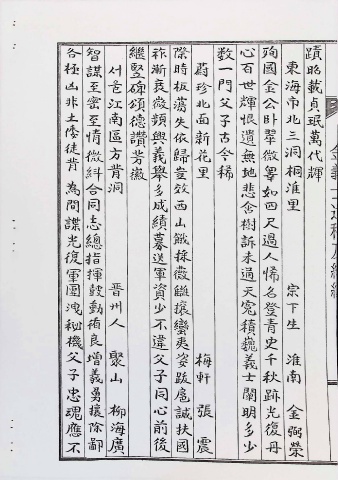 蹟昭載貞珉萬代輝
東海市北三洞桐淮里 宗下生 淮南 金弼榮
殉國金公卦翠微 等如四尺過人悕 名登青史千秋跡 光復丹
心百世輝 恨遺無地悲含樹 訴未過天寃積巍 義士闡明多少
数 一門父子古今稀
蔚珍北面新花里 梅軒 張震
際時板蕩失依歸 章效西山戱採薇 攘蠻夷姿跋扈 誠扶國
祚漸衰微 頻興義擧多成績 募送軍資少不違 父子同心前後
繼 竪碑頌德讚芳徽
서울江南區方背洞 晋州人 聚山 柳海廣
智謀至密至情微 糾合同志總指揮 鼓動循良增義勇 攘除鄙
各極凶非 土倭徒背為間諜 光復軍團洩秘機 父子忠魂應不